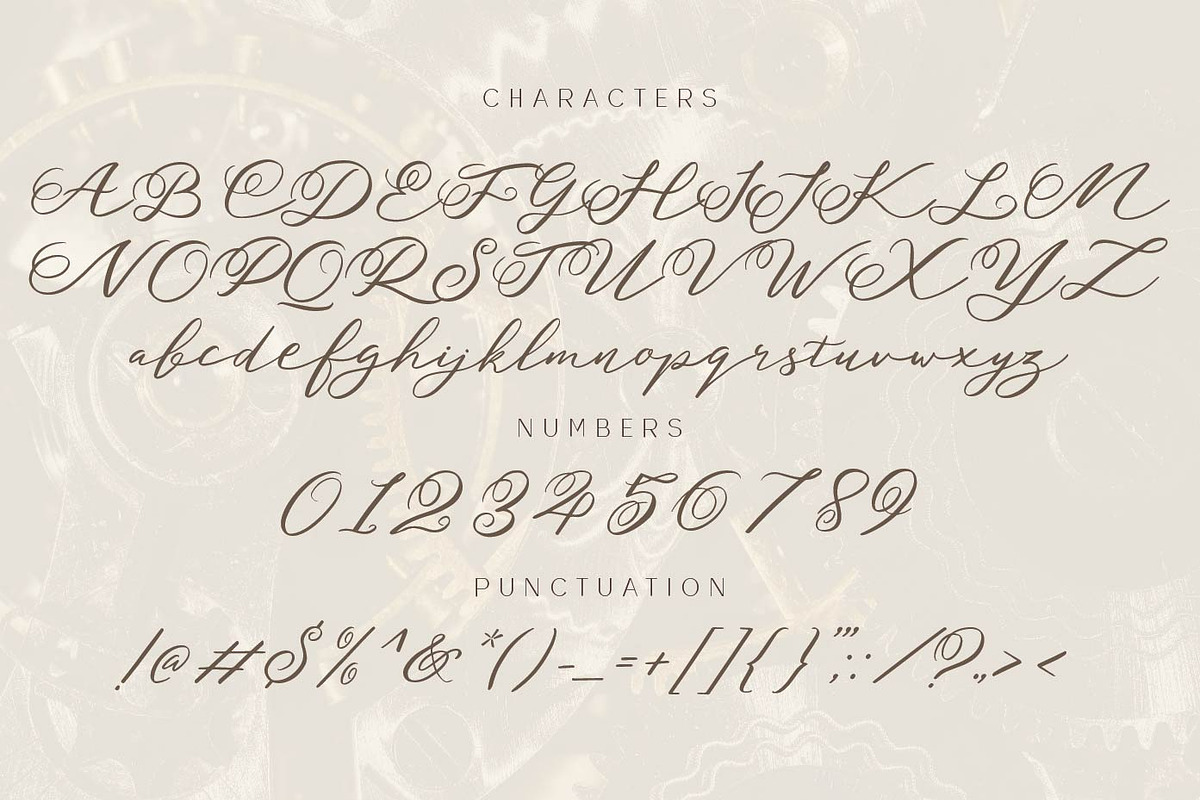 CHARACTERS
A B C D E F G H I J K L M
N O P Q R S T U V W X Y Z
abcdefghijklmnopqrstuvwxyz
NUMBERS
0 1 2 3 4 5 6 7 8 9
PUNCTUATION
! @ # $ % ^ & * ( ) - _ = + [ ] { } " ' ; : / ? . , > <